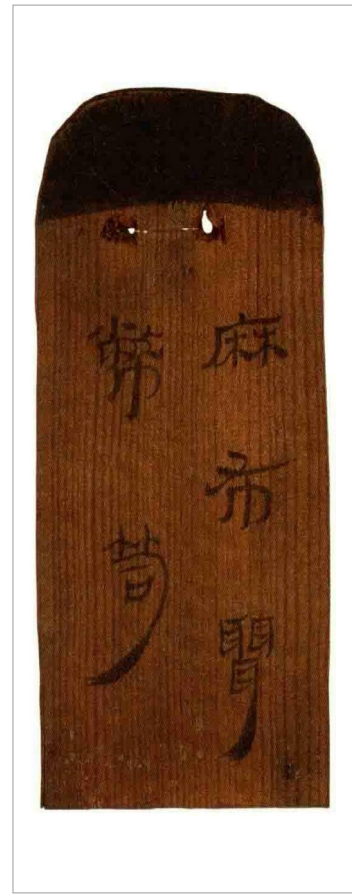 麻布聶
幣笥